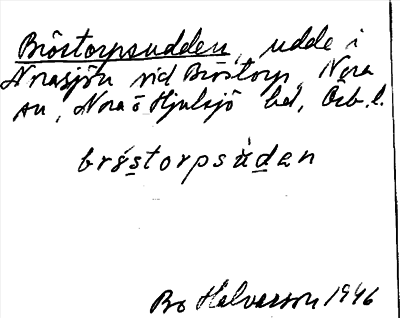 Bröstorpsudden, udde i
Norasjön vid Bröstorp, Nora
sn, Nora o Hjulsjö bd, Örb. l.
brö́storpsùdan
Bo Halvarson 1946